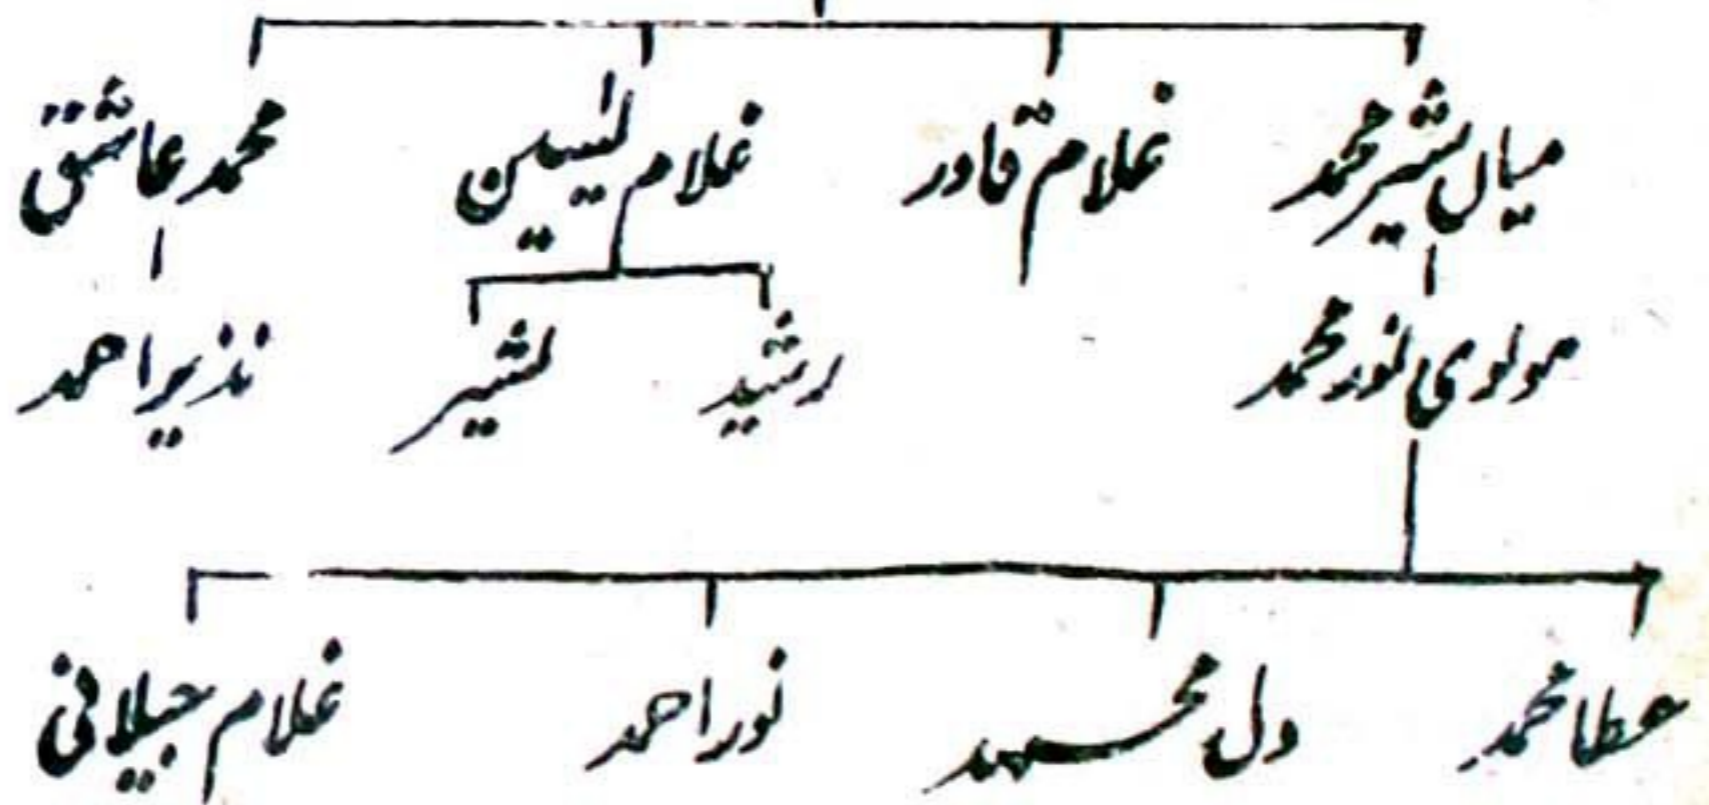 میاں شیر محمد غلام قادر غلام یسین محمد عاشق
مولوی نور محمد رشید بشیر نذیر احمد
عطا محمد دل محمد نور احمد غلام جیلانی